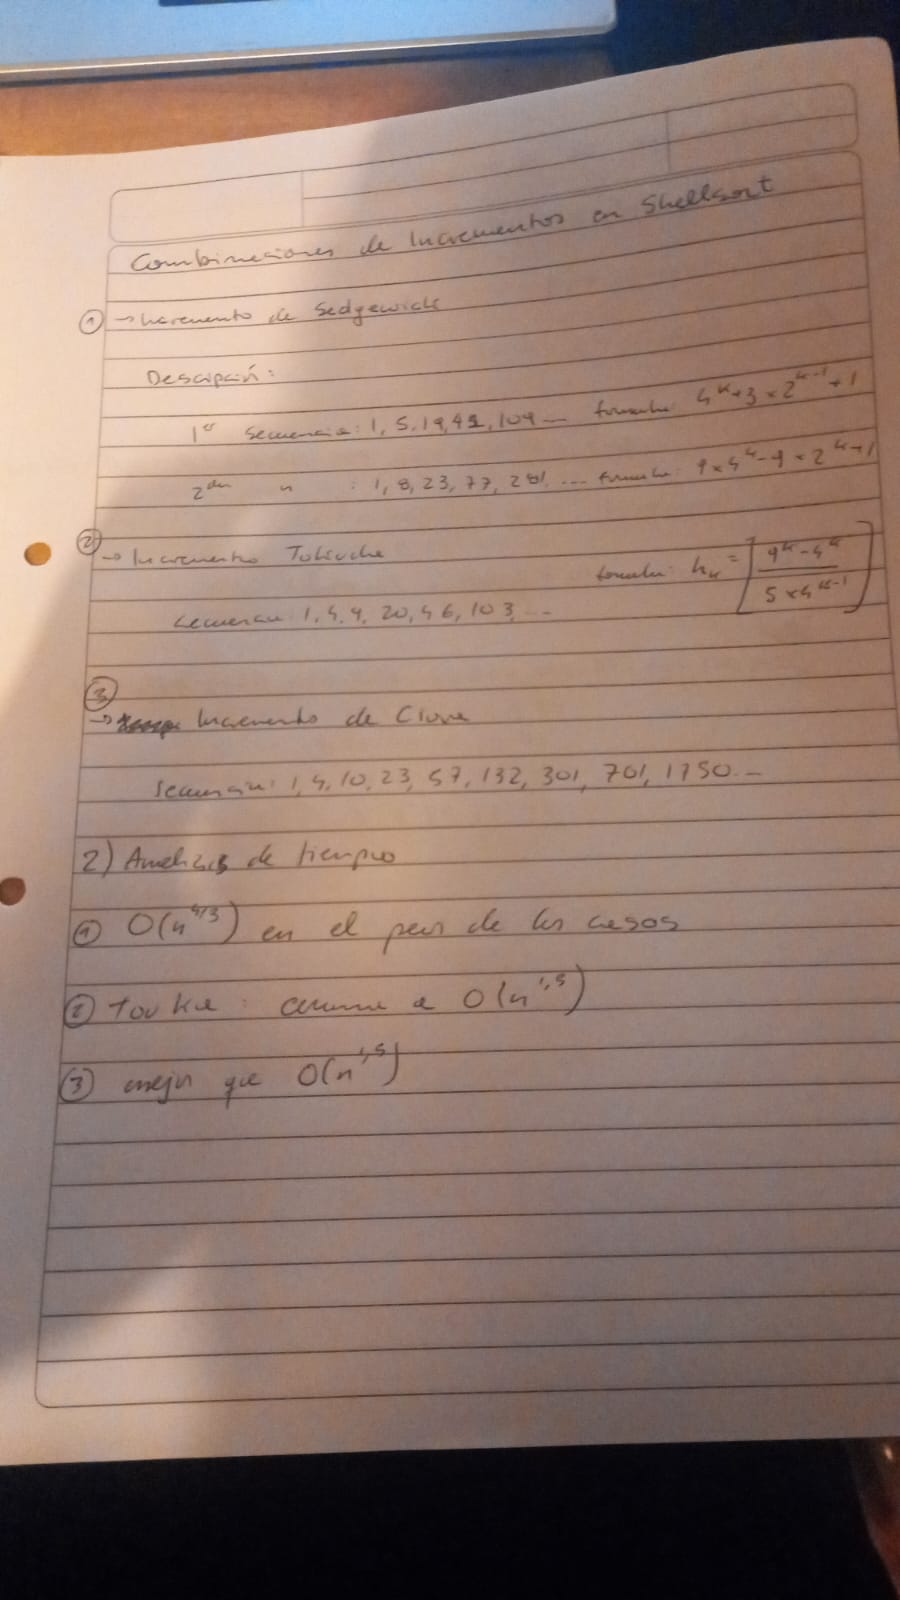 Combinaciones de Incrementos en Shellsort
① → Incremento de Sedgewick
Descripción:
1ra Secuencia: 1, 5, 19, 41, 109 ... formula: 4^k + 3 × 2^(k-1) + 1
2da " : 1, 8, 23, 77, 281, ... formula: 9 × 4^k - 9 × 2^k + 1
② → Incremento Tokuda
secuencia: 1, 4, 9, 20, 46, 103, ... formula: h_k = [(9^k - 4^k) / (5 × 4^(k-1))]
③
→ Incremento de Ciura
Secuencia: 1, 4, 10, 23, 57, 132, 301, 701, 1750 ...
2) Analisis de tiempo
① O(n^4/3) en el peor de los casos
② Touka: cercano a O(n^1,5)
③ mejor que O(n^1,5)